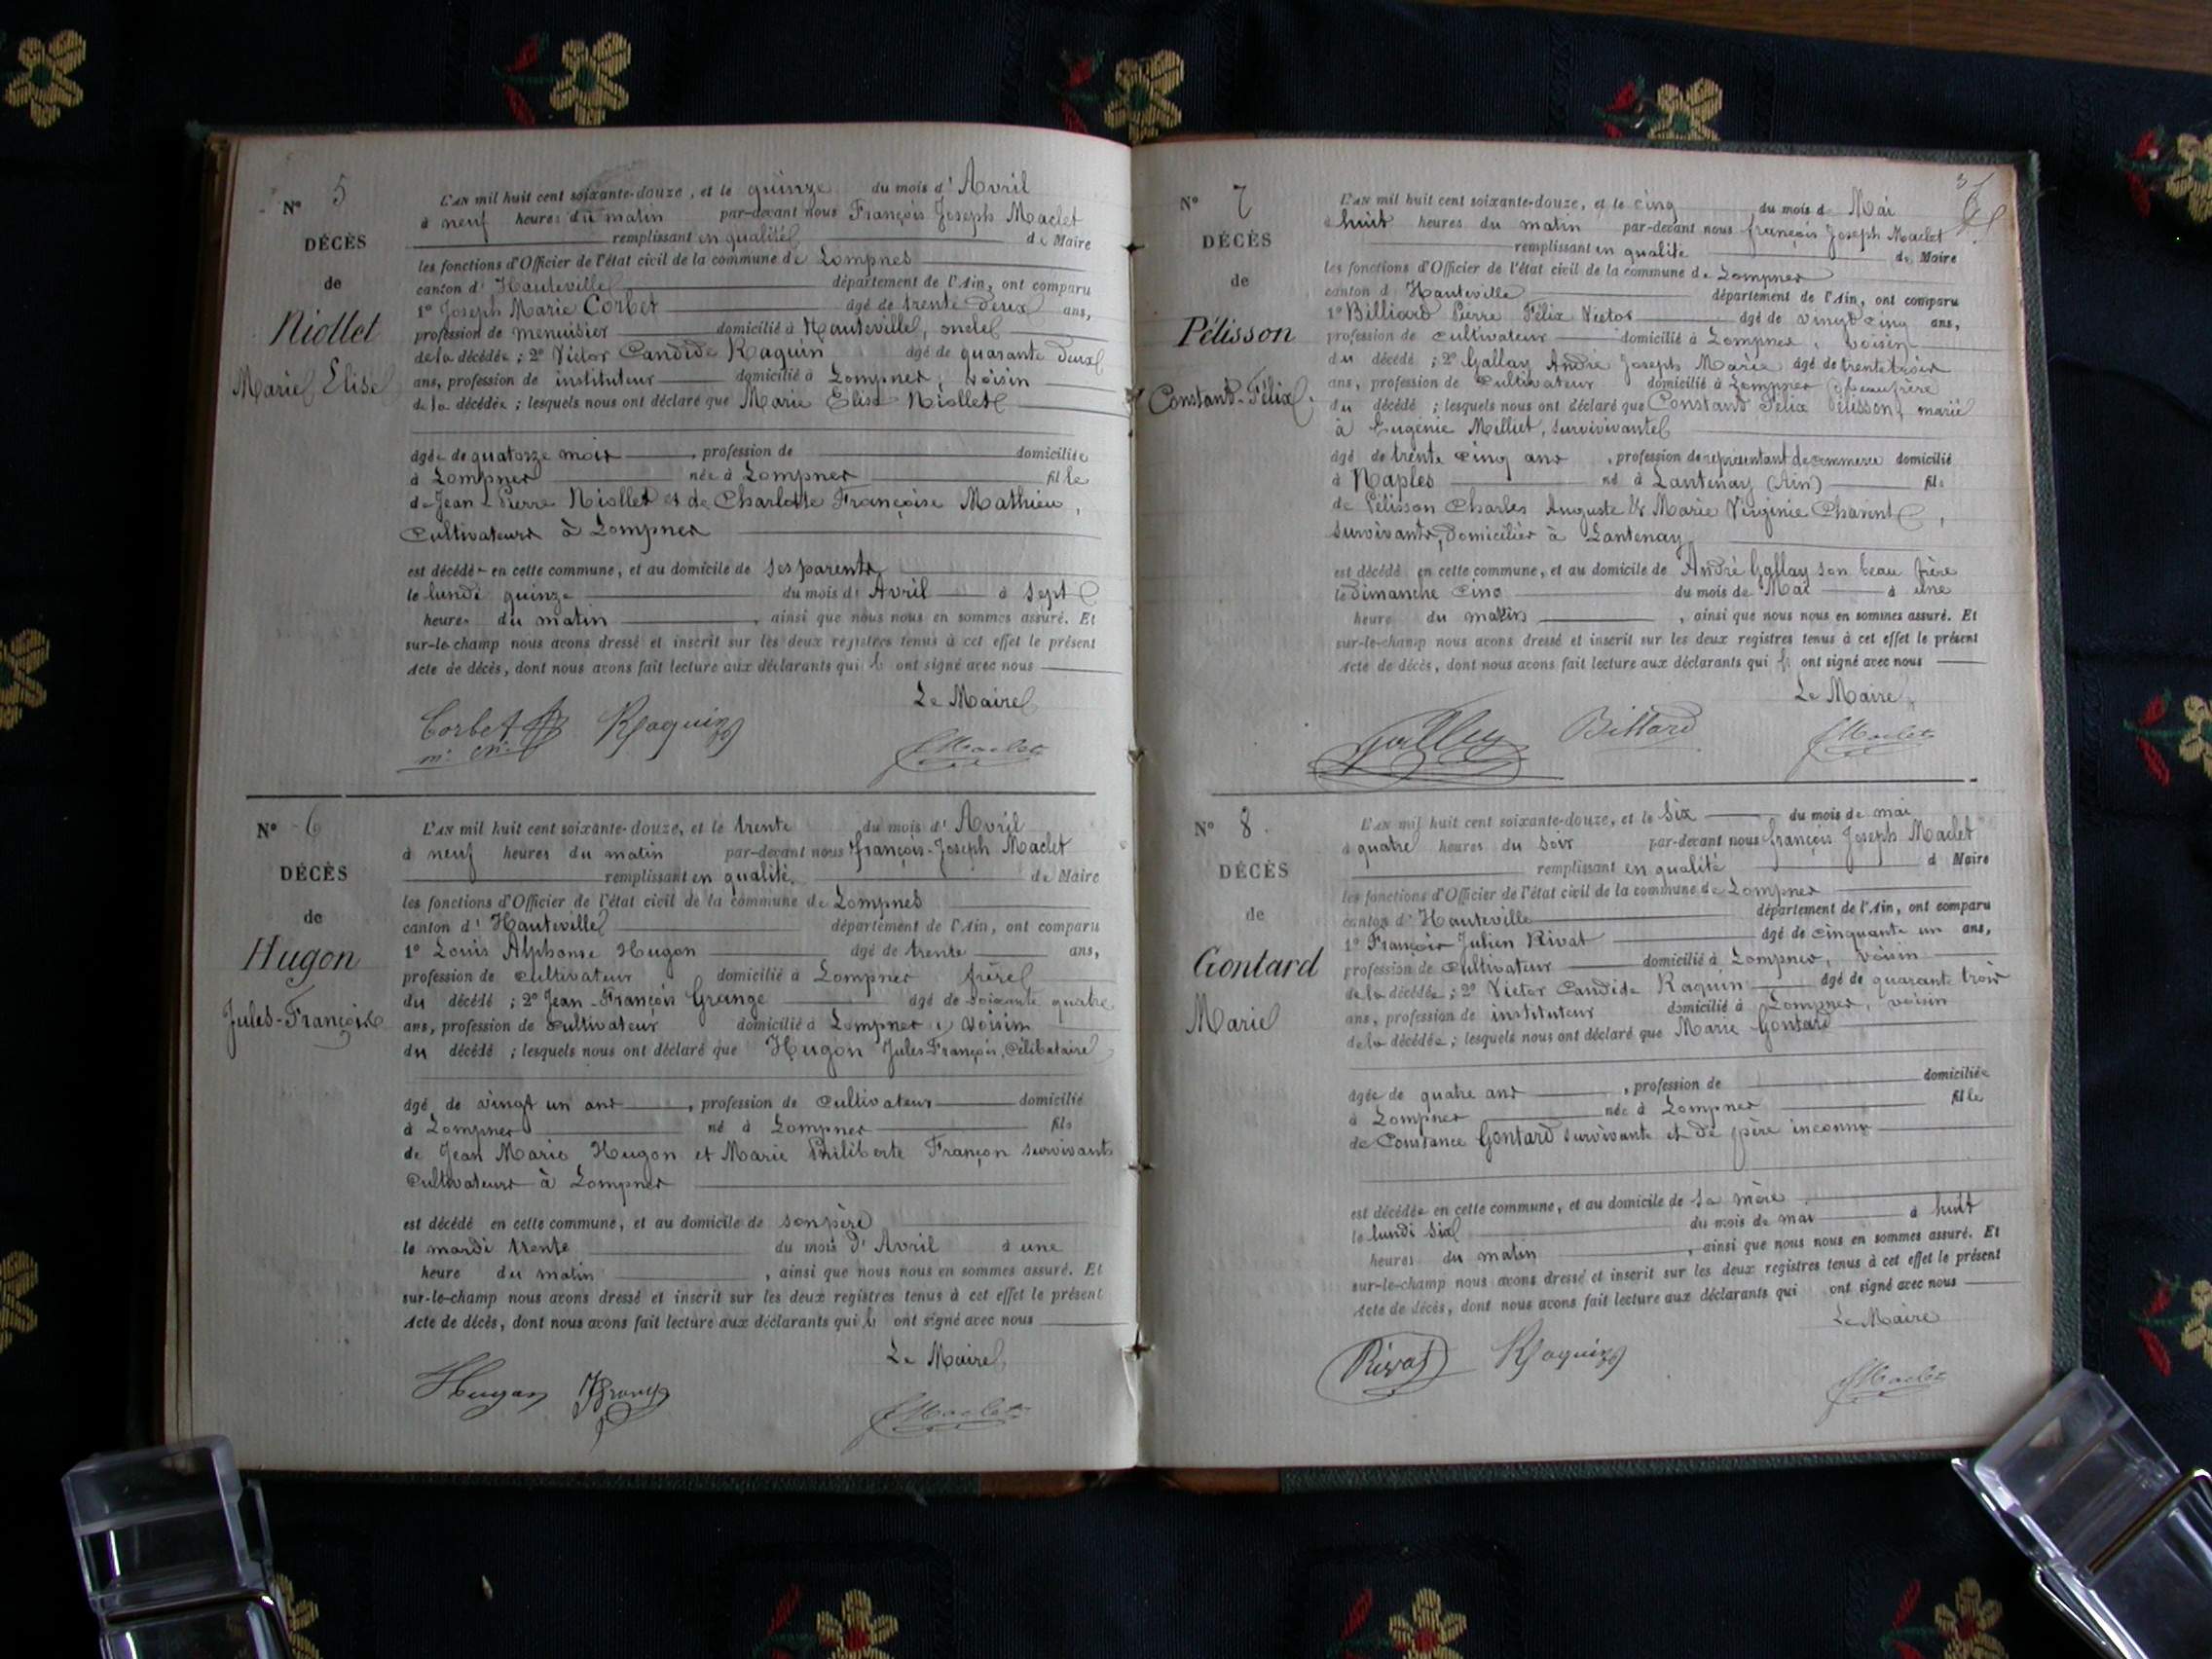 N° 5
DÉCÈS
de
Niollet
Marie Elise
L'AN mil huit cent soixante-douze, et le quinze du mois d' Avril
à neuf heures du matin par-devant nous François Joseph Maclet
remplissant en qualité de Maire
les fonctions d'Officier de l'état civil de la commune de Lompnes
canton d' Hauteville département de l'Ain, ont comparu
1° Joseph Marie Corbet âgé de trente deux ans,
profession de menuisier domicilié à Hauteville, oncle
de la décédée ; 2° Victor Candide Raquin âgé de quarante deux
ans, profession de instituteur domicilié à Lompnes, voisin
de la décédée ; lesquels nous ont déclaré que Marie Elise Niollet
âgée de quatorze mois, profession de domiciliée
à Lompnes née à Lompnes fille
de Jean-Pierre Niollet et de Charlotte Françoise Mathieu,
Cultivateurs à Lompnes
est décédée en cette commune, et au domicile de ses parents
le lundi quinze du mois d' Avril à sept
heures du matin, ainsi que nous nous en sommes assuré. Et
sur-le-champ nous avons dressé et inscrit sur les deux registres tenus à cet effet le présent
Acte de décès, dont nous avons fait lecture aux déclarants qui ont signé avec nous
Le Maire
Corbet Raquin
Maclet
N° 6
DÉCÈS
de
Hugon
Jules-François
L'AN mil huit cent soixante-douze, et le trente du mois d' Avril
à neuf heures du matin par-devant nous François-Joseph Maclet
remplissant en qualité de Maire
les fonctions d'Officier de l'état civil de la commune de Lompnes
canton d' Hauteville département de l'Ain, ont comparu
1° Louis Alphonse Hugon âgé de trente ans,
profession de cultivateur domicilié à Lompnes frère
du décédé ; 2° Jean-François Grange âgé de soixante quatre
ans, profession de cultivateur domicilié à Lompnes, voisin
du décédé ; lesquels nous ont déclaré que Hugon Jules François, Célibataire
âgé de vingt un ans, profession de cultivateur domicilié
à Lompnes né à Lompnes fils
de Jean Marie Hugon et Marie Philiberte Françon survivants
Cultivateurs à Lompnes
est décédé en cette commune, et au domicile de son père
le mardi trente du mois d' Avril à une
heure du matin, ainsi que nous nous en sommes assuré. Et
sur-le-champ nous avons dressé et inscrit sur les deux registres tenus à cet effet le présent
Acte de décès, dont nous avons fait lecture aux déclarants qui ont signé avec nous
Le Maire
Hugon
Maclet
N° 7
DÉCÈS
de
Pélisson
Constant-Félix
L'AN mil huit cent soixante-douze, et le cinq du mois de Mai
à huit heures du matin par-devant nous François Joseph Maclet
remplissant en qualité de Maire
les fonctions d'Officier de l'état civil de la commune de Lompnes
canton d' Hauteville département de l'Ain, ont comparu
1° Billiard Pierre Félix Victor âgé de vingt cinq ans,
profession de cultivateur domicilié à Lompnes, voisin
du décédé ; 2° Gallay André Joseph Marie âgé de trente trois
ans, profession de Cultivateur domicilié à Lompnes beau frère
du décédé ; lesquels nous ont déclaré que Constant Félix Pélisson, marié
à Eugénie Milliet, survivante
âgé de trente cinq ans, profession de représentant de commerce domicilié
à Naples né à Lantenay (Ain) fils
de Pélisson Charles Auguste & Marie Virginie Charint,
survivants, domiciliés à Lantenay
est décédé en cette commune, et au domicile de André Gallay son beau frère
le Dimanche cinq du mois de Mai à une
heure du matin, ainsi que nous nous en sommes assuré. Et
sur-le-champ nous avons dressé et inscrit sur les deux registres tenus à cet effet le présent
Acte de décès, dont nous avons fait lecture aux déclarants qui ont signé avec nous
Le Maire
Gallay Billard
Maclet
N° 8
DÉCÈS
de
Gontard
Marie
L'AN mil huit cent soixante-douze, et le six du mois de mai
à quatre heures du soir par-devant nous François Joseph Maclet
remplissant en qualité d Maire
les fonctions d'Officier de l'état civil de la commune de Lompnes
canton d' Hauteville département de l'Ain, ont comparu
1° François Julien Rivat âgé de cinquante un ans,
profession de cultivateur domicilié à Lompnes, voisin
de la décédée ; 2° Victor Candide Raquin âgé de quarante trois
ans, profession de instituteur domicilié à Lompnes, voisin
de la décédée ; lesquels nous ont déclaré que Marie Gontard
âgée de quatre ans, profession de domiciliée
à Lompnes née à Lompnes fille
de Constance Gontard survivante et de père inconnu
est décédée en cette commune, et au domicile de sa mère
le lundi six du mois de mai à huit
heures du matin, ainsi que nous nous en sommes assuré. Et
sur-le-champ nous avons dressé et inscrit sur les deux registres tenus à cet effet le présent
Acte de décès, dont nous avons fait lecture aux déclarants qui ont signé avec nous
Le Maire
Rivat Raquin
Maclet